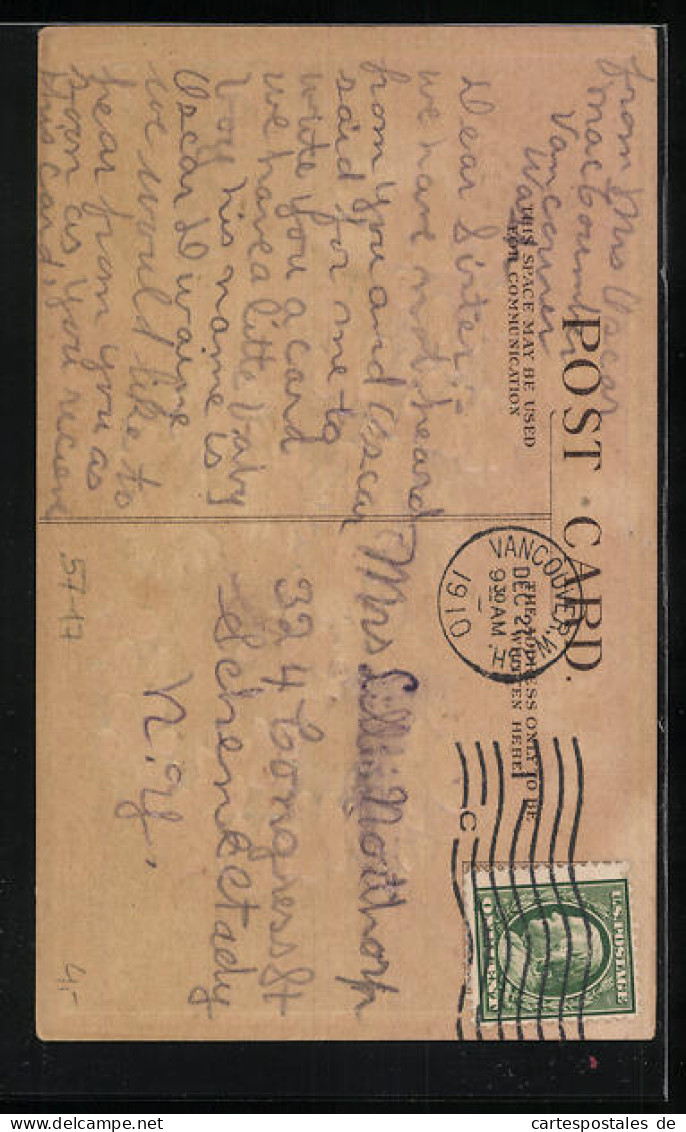 POST CARD.
THIS SPACE MAY BE USED
FOR COMMUNICATION
THE ADDRESS ONLY TO BE
WRITTEN HERE
from Mrs Oscar
Vancouver
Wash
Dear Sister:-
we have not heard
from you and Oscar
said for me to
write you a card
we have a little baby
boy his name is
Oscar Dwaine
we would like to
hear from you as
soon as you recieve
this card,
VANCOUVER, WASH.
DEC 24
9 30 AM
1910
C
U.S. POSTAGE
ONE CENT
Mrs Lillie Northorp
324 Congress St
Schenectady
N.Y.
57-17
4,-
www.cartespostales.eu
cartespostales de